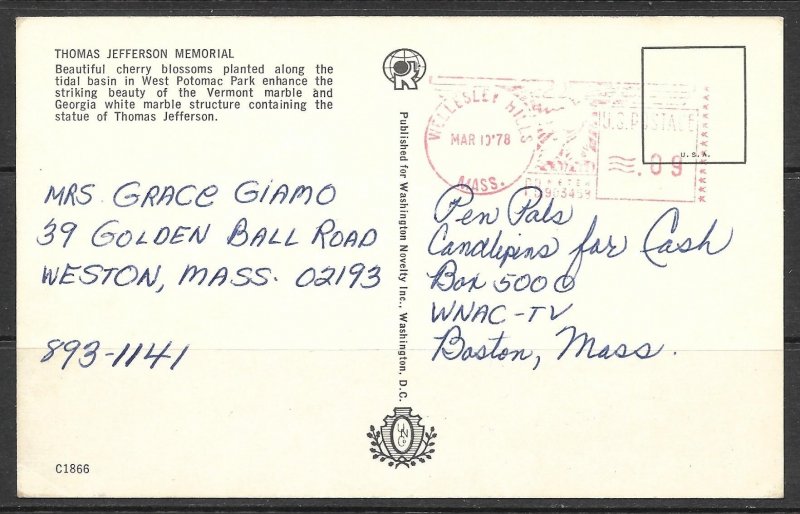 THOMAS JEFFERSON MEMORIAL
Beautiful cherry blossoms planted along the
tidal basin in West Potomac Park enhance the
striking beauty of the Vermont marble and
Georgia white marble structure containing the
statue of Thomas Jefferson.
MRS GRACE GIAMO
39 GOLDEN BALL ROAD
WESTON, MASS. 02193
893-1141
C1866
Published for Washington Novelty Inc., Washington, D.C.
WELLESLEY HILLS
MAR 10'78
MASS.
U.S. POSTAGE
.09
U.S.A.
Pen Pals
Candlepins for Cash
Box 5000
WNAC-TV
Boston, Mass.